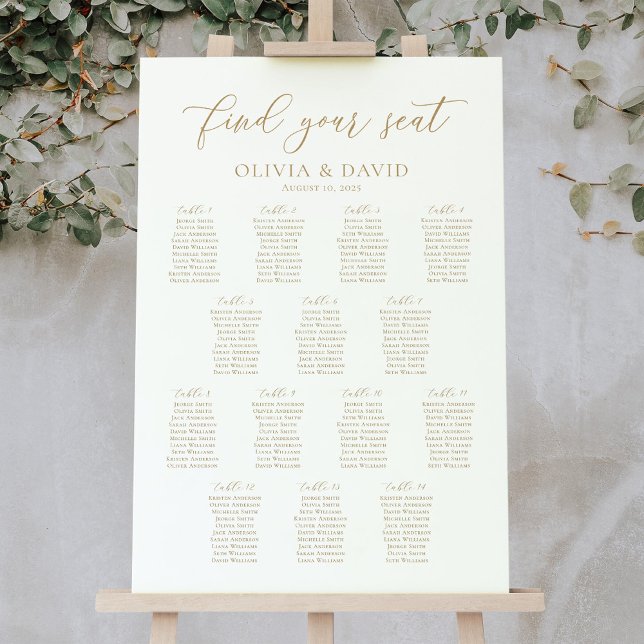 find your seat
OLIVIA & DAVID
August 10, 2025
table 1
Jeorge Smith
Olivia Smith
Jack Anderson
Sarah Anderson
David Williams
Michelle Smith
Liana Williams
Seth Williams
Kristen Anderson
Oliver Anderson
table 2
Kristen Anderson
Oliver Anderson
Michelle Smith
Jeorge Smith
Olivia Smith
Jack Anderson
Sarah Anderson
David Williams
Liana Williams
Seth Williams
table 3
Jeorge Smith
Olivia Smith
Seth Williams
Kristen Anderson
Oliver Anderson
David Williams
Michelle Smith
Jack Anderson
Sarah Anderson
Liana Williams
table 4
Kristen Anderson
Oliver Anderson
David Williams
Michelle Smith
Jack Anderson
Sarah Anderson
Liana Williams
Jeorge Smith
Olivia Smith
Seth Williams
table 5
Kristen Anderson
Oliver Anderson
Michelle Smith
Jeorge Smith
Olivia Smith
Jack Anderson
Sarah Anderson
David Williams
Liana Williams
Seth Williams
table 6
Jeorge Smith
Olivia Smith
Seth Williams
Kristen Anderson
Oliver Anderson
David Williams
Michelle Smith
Jack Anderson
Sarah Anderson
Liana Williams
table 7
Kristen Anderson
Oliver Anderson
David Williams
Michelle Smith
Jack Anderson
Sarah Anderson
Liana Williams
Jeorge Smith
Olivia Smith
Seth Williams
table 8
Jeorge Smith
Olivia Smith
Jack Anderson
Sarah Anderson
David Williams
Michelle Smith
Liana Williams
Seth Williams
Kristen Anderson
Oliver Anderson
table 9
Kristen Anderson
Oliver Anderson
Michelle Smith
Jeorge Smith
Olivia Smith
Jack Anderson
Sarah Anderson
Liana Williams
Seth Williams
David Williams
table 10
Jeorge Smith
Olivia Smith
Seth Williams
Kristen Anderson
Oliver Anderson
David Williams
Michelle Smith
Jack Anderson
Sarah Anderson
Liana Williams
table 11
Kristen Anderson
Oliver Anderson
David Williams
Michelle Smith
Jack Anderson
Sarah Anderson
Liana Williams
Jeorge Smith
Olivia Smith
Seth Williams
table 12
Kristen Anderson
Oliver Anderson
Michelle Smith
Jeorge Smith
Olivia Smith
Jack Anderson
Sarah Anderson
Liana Williams
Seth Williams
David Williams
table 13
Jeorge Smith
Olivia Smith
Seth Williams
Kristen Anderson
Oliver Anderson
David Williams
Michelle Smith
Jack Anderson
Sarah Anderson
Liana Williams
table 14
Kristen Anderson
Oliver Anderson
David Williams
Michelle Smith
Jack Anderson
Sarah Anderson
Liana Williams
Jeorge Smith
Olivia Smith
Seth Williams